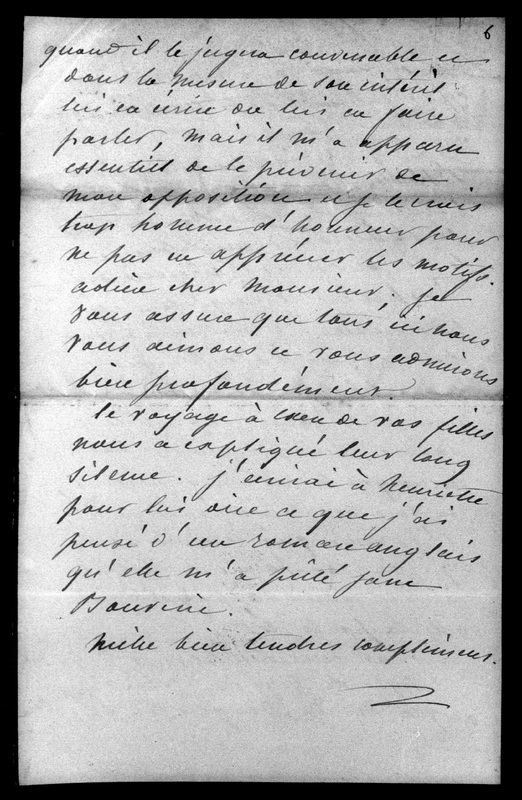 6
quand il le jugera convenable et
dans la mesure de son intérêt
lui en écrire ou lui en faire
parler, mais il m'a apparu
essentiel de le prévenir de
mon opposition et je le crois
trop homme d'honneur pour
ne pas en apprécier les motifs.
adieu cher Monsieur, je
vous assure que tous ici nous
vous aimons et vous admirons
bien profondément.
le voyage à de vos filles
nous a expliqué leur long
silence. j'écrirai à Henriette
pour lui dire ce que j'ai
pensé d'un roman anglais
qu'elle m'a prêté Jane
mille bien tendres compliments.